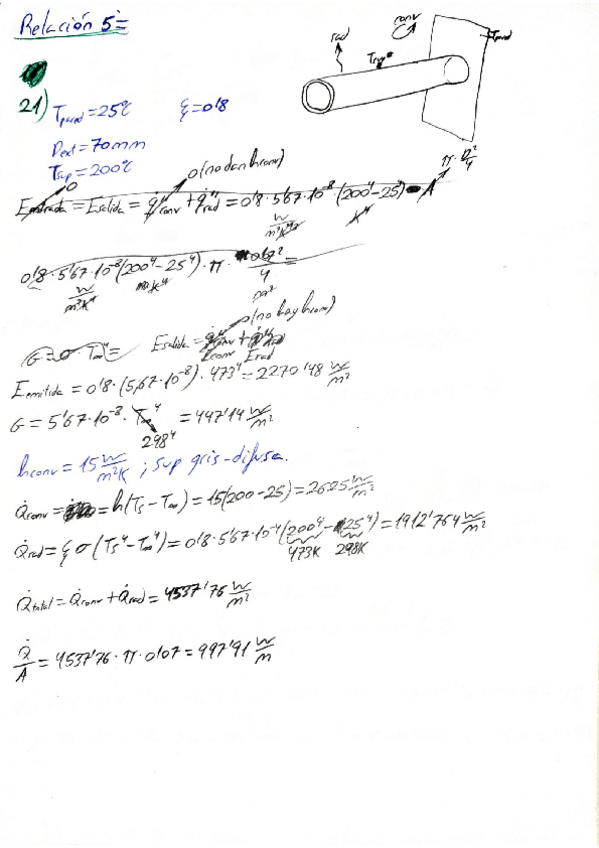 Relación 5:
rad
conv
T pared
Tsup
21) Tpared = 25ºC ξ = 0'8
Dext = 70mm
Tsup = 200ºC
0 0 (no dan hconv) π·D²/4
Eentrada = Esalida = q̇"conv + q̇"rad = 0'8·5'67·10⁻⁸·(200⁴-25⁴)·A
W/m²K⁴ K⁴
0'8·5'67·10⁻⁸(200⁴-25⁴)·π·0'07²/4 =
W/m²K⁴ K⁴ m²
0 (no hay hconv)
G = σ·T∞⁴ = Esalida = q̇"conv + q̇"rad
Econv Erad
Eemitida = 0'8·(5,67·10⁻⁸)·473⁴ = 2270'48 W/m²
G = 5'67·10⁻⁸·T∞⁴ = 447'14 W/m²
298⁴
hconv = 15 W/m²K ; sup gris-difusa.
Q̇conv = h(Ts - T∞) = 15(200-25) = 2625 W/m²
Q̇rad = ξσ(Ts⁴-T∞⁴) = 0'8·5'67·10⁻⁸(200⁴-25⁴) = 1912'764 W/m²
473K 298K
Q̇total = Q̇conv + Q̇rad = 4537'76 W/m²
Q̇/A = 4537'76·π·0'07 = 997'91 W/m